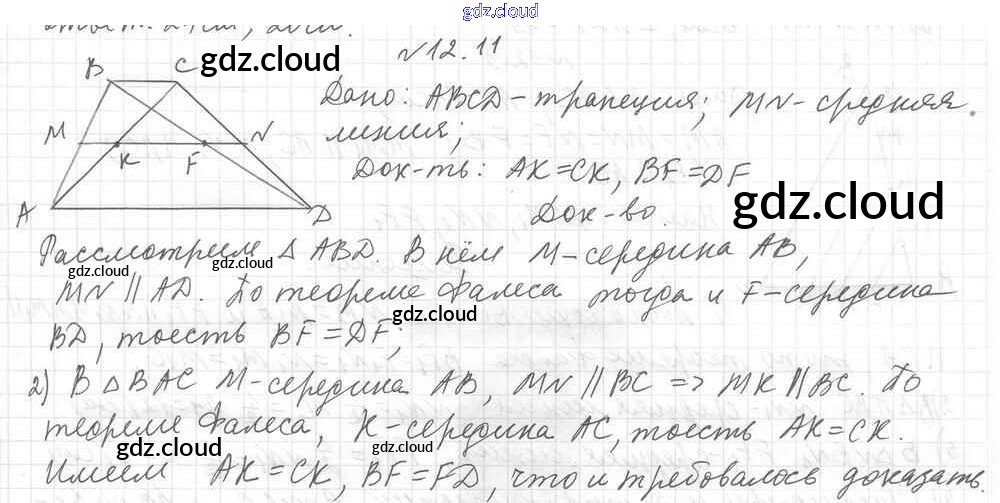 gdz.cloud
№12.11
gdz.cloud
B C
Дано: ABCD-трапеция; MN-средняя
линия;
M N
K F
gdz.cloud
Док-ть: AK=CK, BF=DF
gdz.cloud
A D
Док-во.
Рассмотрим △ ABD. В нём M-середина AB,
gdz.cloud gdz.cloud
MN || AD. По теореме Фалеса тогда и F-середина
gdz.cloud
BD, тоесть BF=DF;
2) В △ BAC M-середина AB, MN || BC => MK || BC. По
теореме Фалеса, K-середина AC, тоесть AK=CK.
gdz.cloud gdz.cloud
Имеем AK=CK, BF=FD, что и требовалось доказать.
gdz.cloud